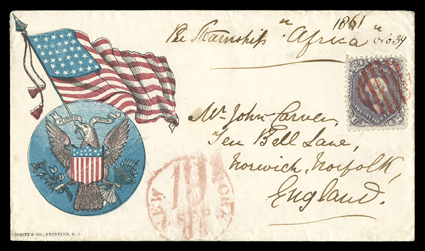 1861
Per Steamship "Africa"
Mr John Carver,
Ten Bell Lane,
Norwich, Norfolk,
England.
NEW YORK
19
& CO., PRINTERS, N. Y.